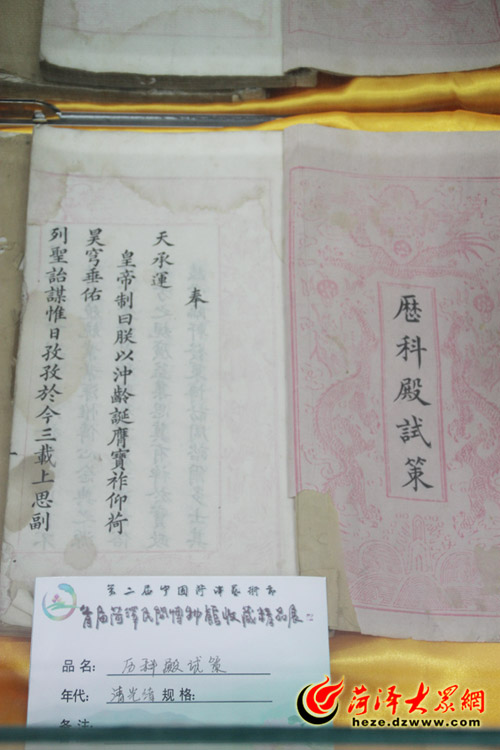 歷科殿試策
奉
天承運
皇帝制曰朕以沖齡誕膺寶祚仰荷
昊穹垂佑
列聖詒謀惟日孜孜於今三載上思副
第二届中国菏泽艺术节
首届菏泽民间博物馆收藏精品展
品名: 历科殿试策
年代: 清光绪 规格:
备注:
菏泽大眾網
heze.dzwww.com